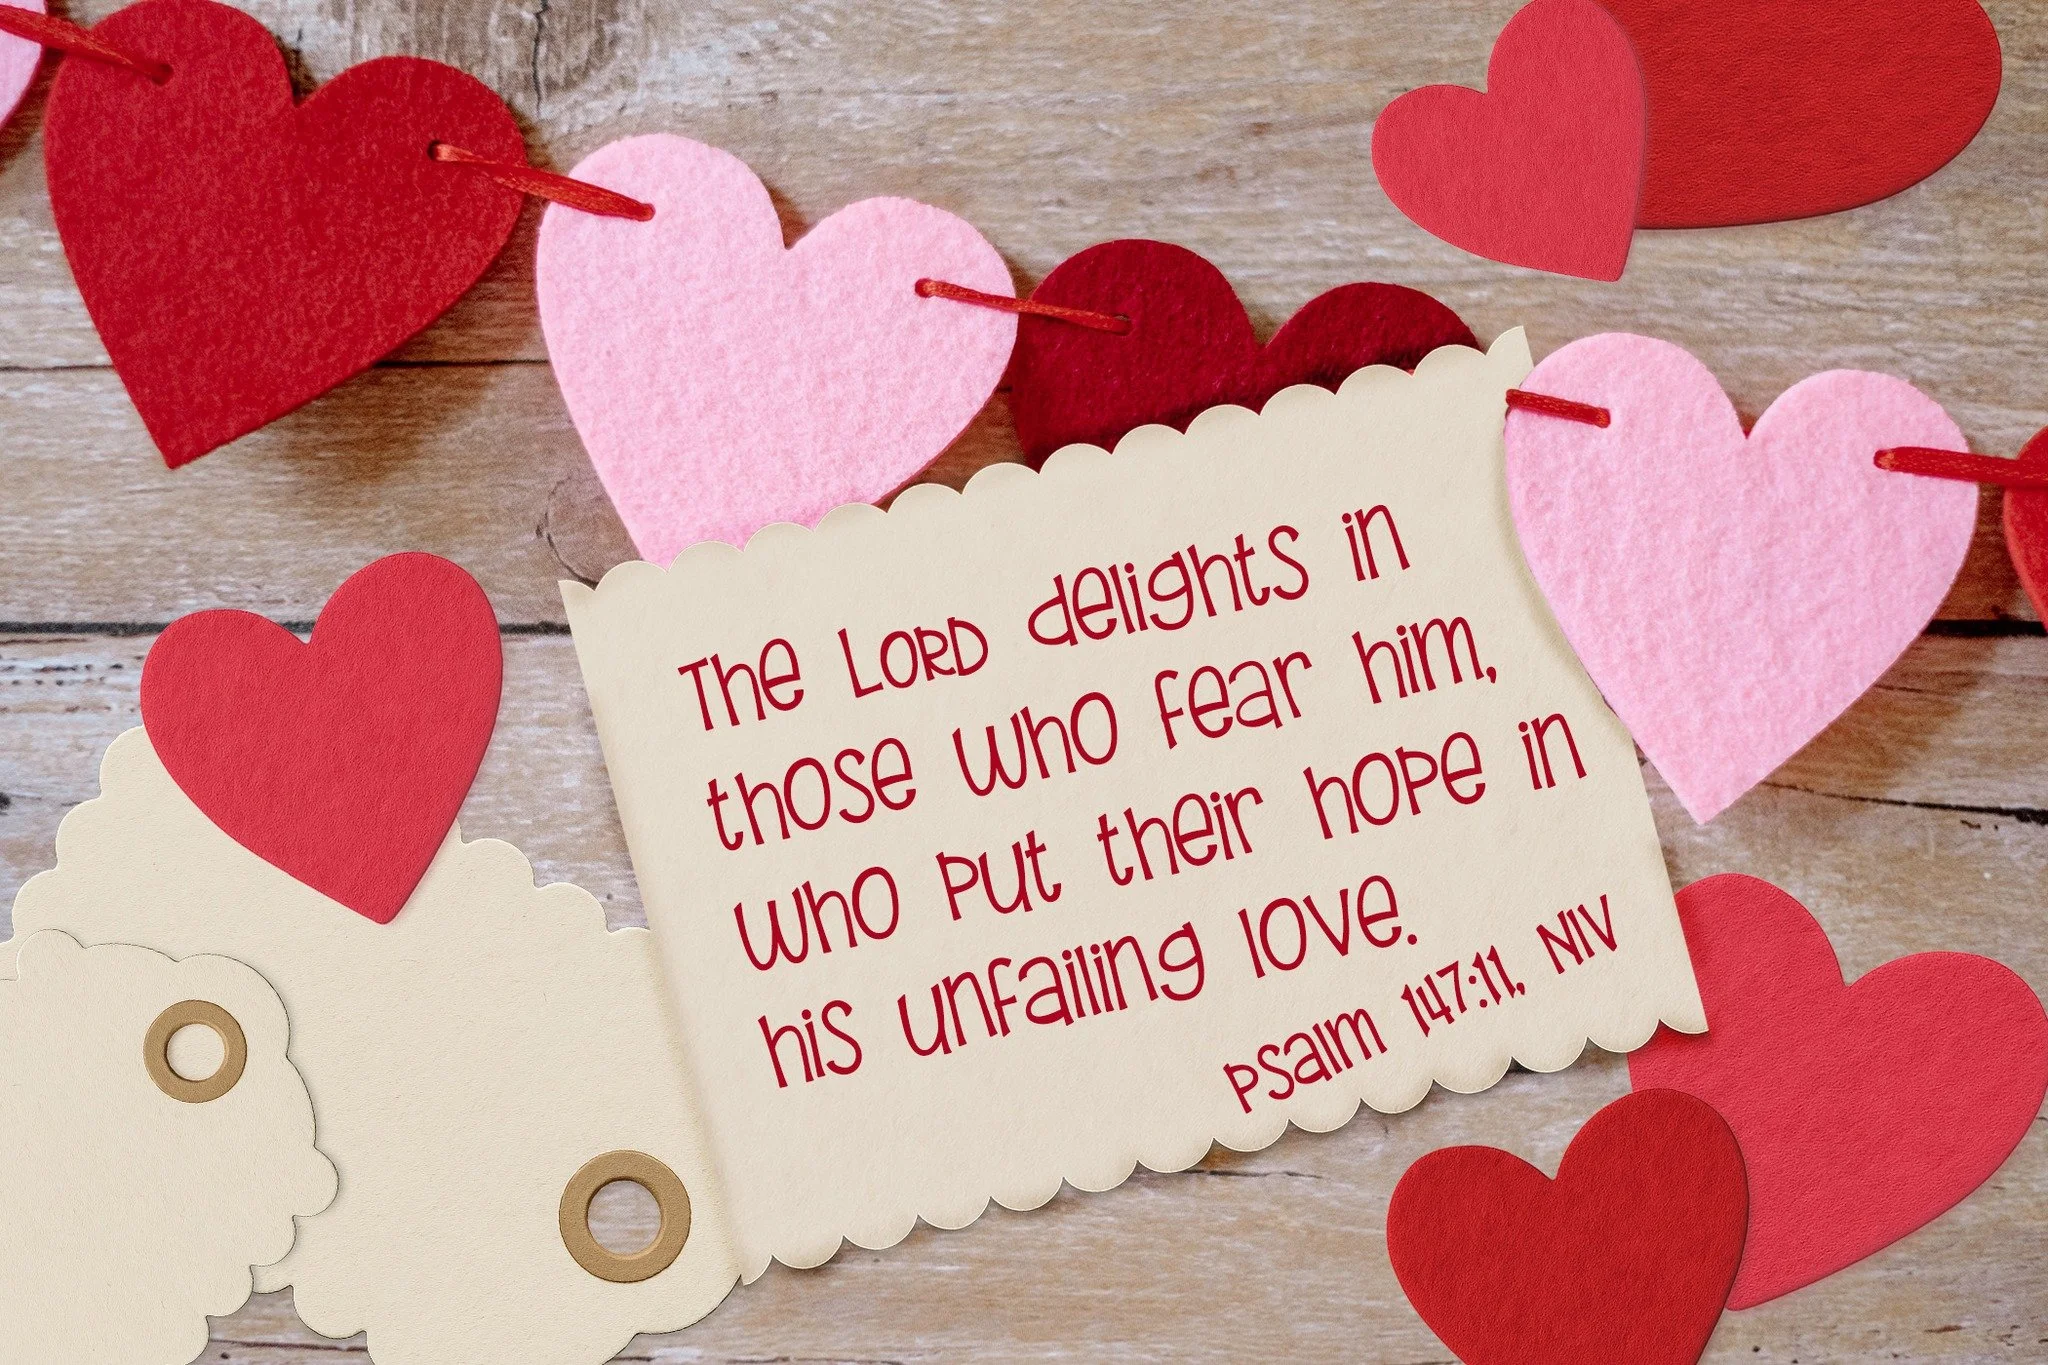 The LORD delights in
those who fear him,
who put their hope in
his unfailing love.
Psalm 147:11, NIV